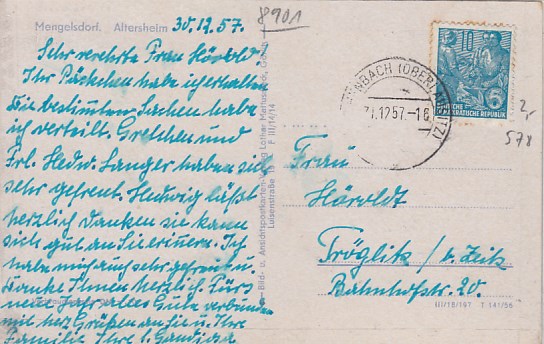 Mengelsdorf. Altersheim 30.12.57.
8901
Sehr verehrte Frau Höroldt
Ihr Päckchen habe ich erhalten
Die bestimten Sachen habe
ich verteilt. Gretchen und
Frl. Hedw. Langer haben sich
sehr gefreut. Hedwig läßt
herzlich danken sie kann
sich gut an Sie erinern. Ich
habe mich auch sehr gefreut u.
danke Ihnen herzlich. Fürs
neue Jahr alles Gute verbunden
mit herz. Grüßen an Sie u. Ihre
Familie Ihre
Bild- u. Ansichtspostkarten- Lothar
Luisenstraße 19 F III/14/14
BACH (OBERL
31.12.57.-16
DEUTSCHE
DEMOKRATISCHE REPUBLIK
2,-
578
Frau
Höroldt
Tröglitz / b. Zeitz
Bahnhofstr. 20.
III/18/197 T 141/56